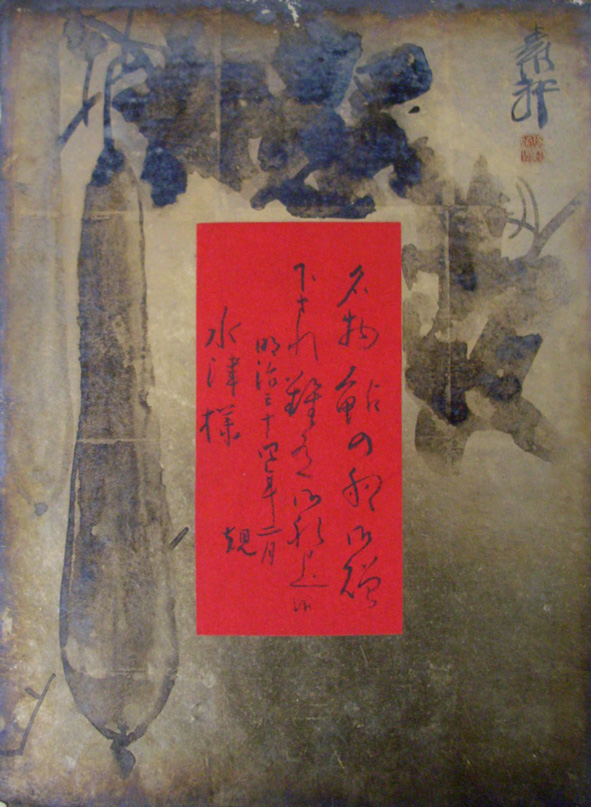 名物 鮎の 御贈
下され難有御礼上候
明治三十四年二月
規
水津様